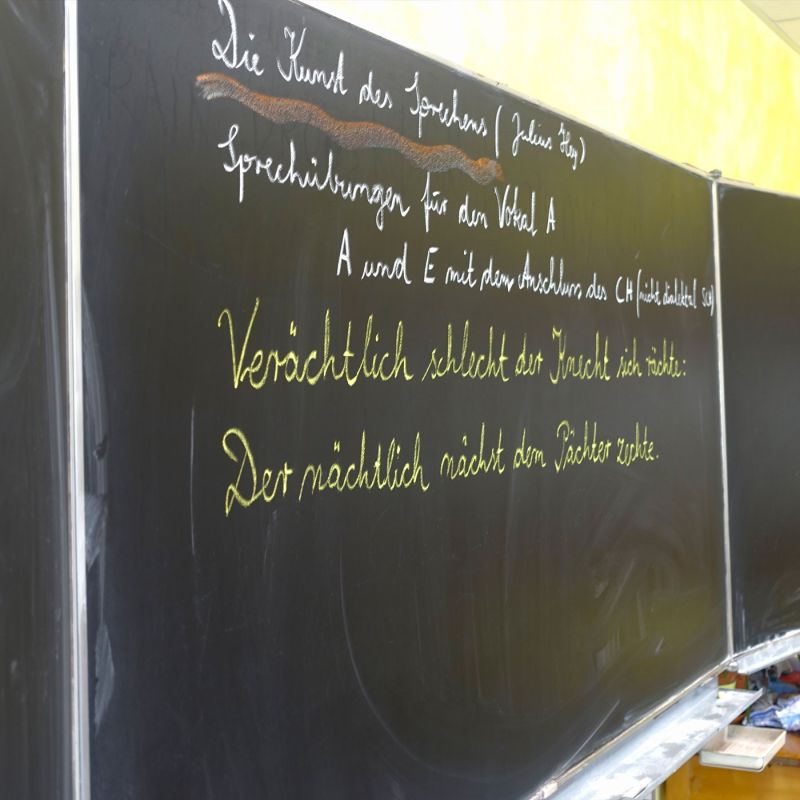 Die Kunst des Sprechens (Julius Hey)
Sprechübungen für den Vokal A
A und E mit dem Anschluss des CH (nicht dialektal SCH)
Verächtlich schlecht der Knecht sich rächte:
Der nächtlich nächst dem Pächter zechte.